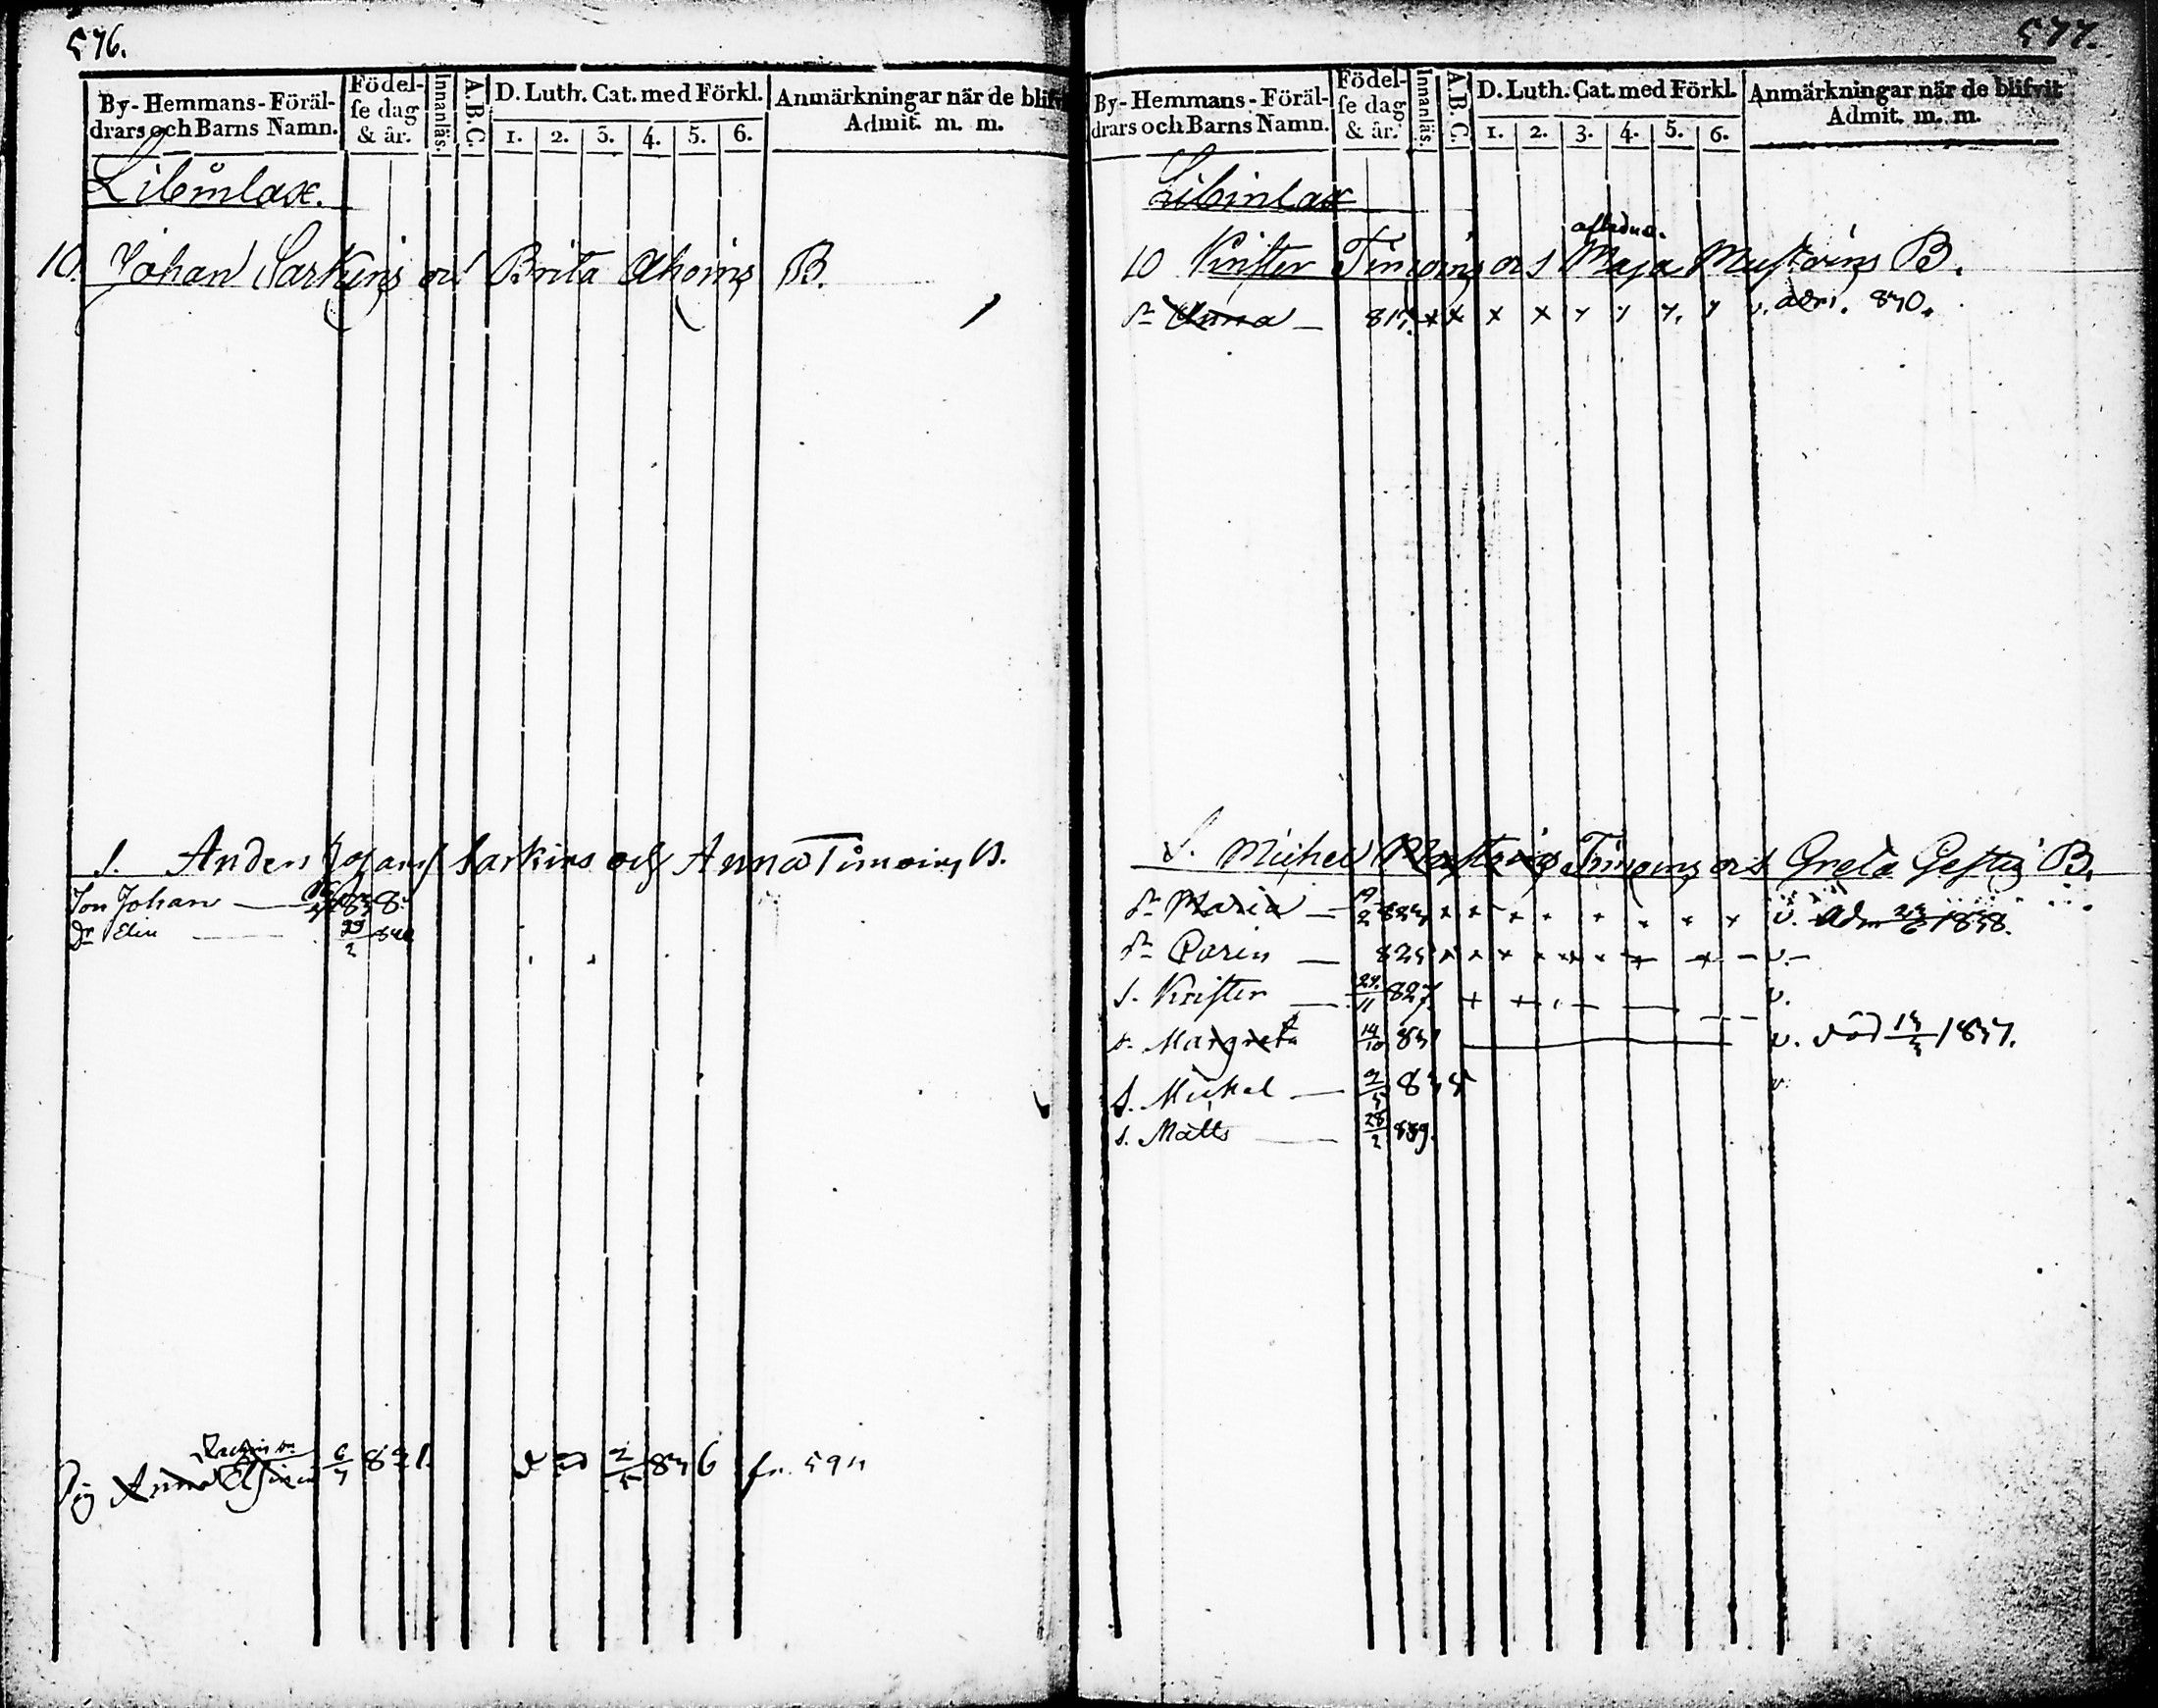 576.
By-Hemmans-Föräldrars och Barns Namn. Födelse dag & år. Innanläs. A.B.C. D. Luth. Cat. med Förkl. 1. 2. 3. 4. 5. 6. Anmärkningar när de blifv Admit. m. m.
Libimlax.
10. Johan Sarkins och Brita Ahoins B.
S. Anders Johans Sarkins och Anna Timoins B.
Son Johan 838.
Dr Elin 29/2 840
Pig Anna 6/7 821. död 2/5 836 fr.
577.
By-Hemmans-Föräldrars och Barns Namn. Födelse dag & år. Innanläs. A.B.C. D. Luth. Cat. med Förkl. 1. 2. 3. 4. 5. 6. Anmärkningar när de blifvit Admit. m. m.
Libimlax
10 Krister Timoins och afledna Maja Mustoins B.
dr Anna 817. x x x x x x x x v. adm. 840.
S. Michel Timoins och Greta B.
dr Maria 19/2 x x x x x x x x v. Adm 24/6 1838.
dr Carin 825 x x x x x x x x v.
s. Krister 24/11 827. x x v.
dr Margreta 14/10 831 v. död 1837.
s. Mickel 9/5 835 v.
s. Matts 28/2 839.